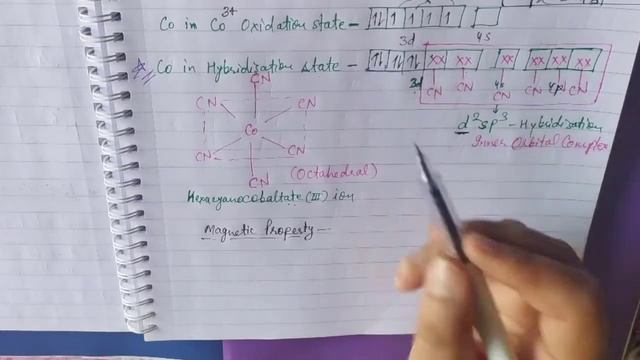 Co in Co³⁺ Oxidation state – ↿⇂ 1 1 1 1
3d 4s
Co in Hybridisation state – ↿⇂ ↿⇂ ↿⇂ xx xx xx xx xx xx
3d 4s 4p
CN CN CN CN CN CN
d²sp³ – Hybridisation
Inner Orbital Complex
CN
CN CN
Co
CN CN
CN (Octahedral)
Hexacyanocobaltate (III) ion
Magnetic Property –